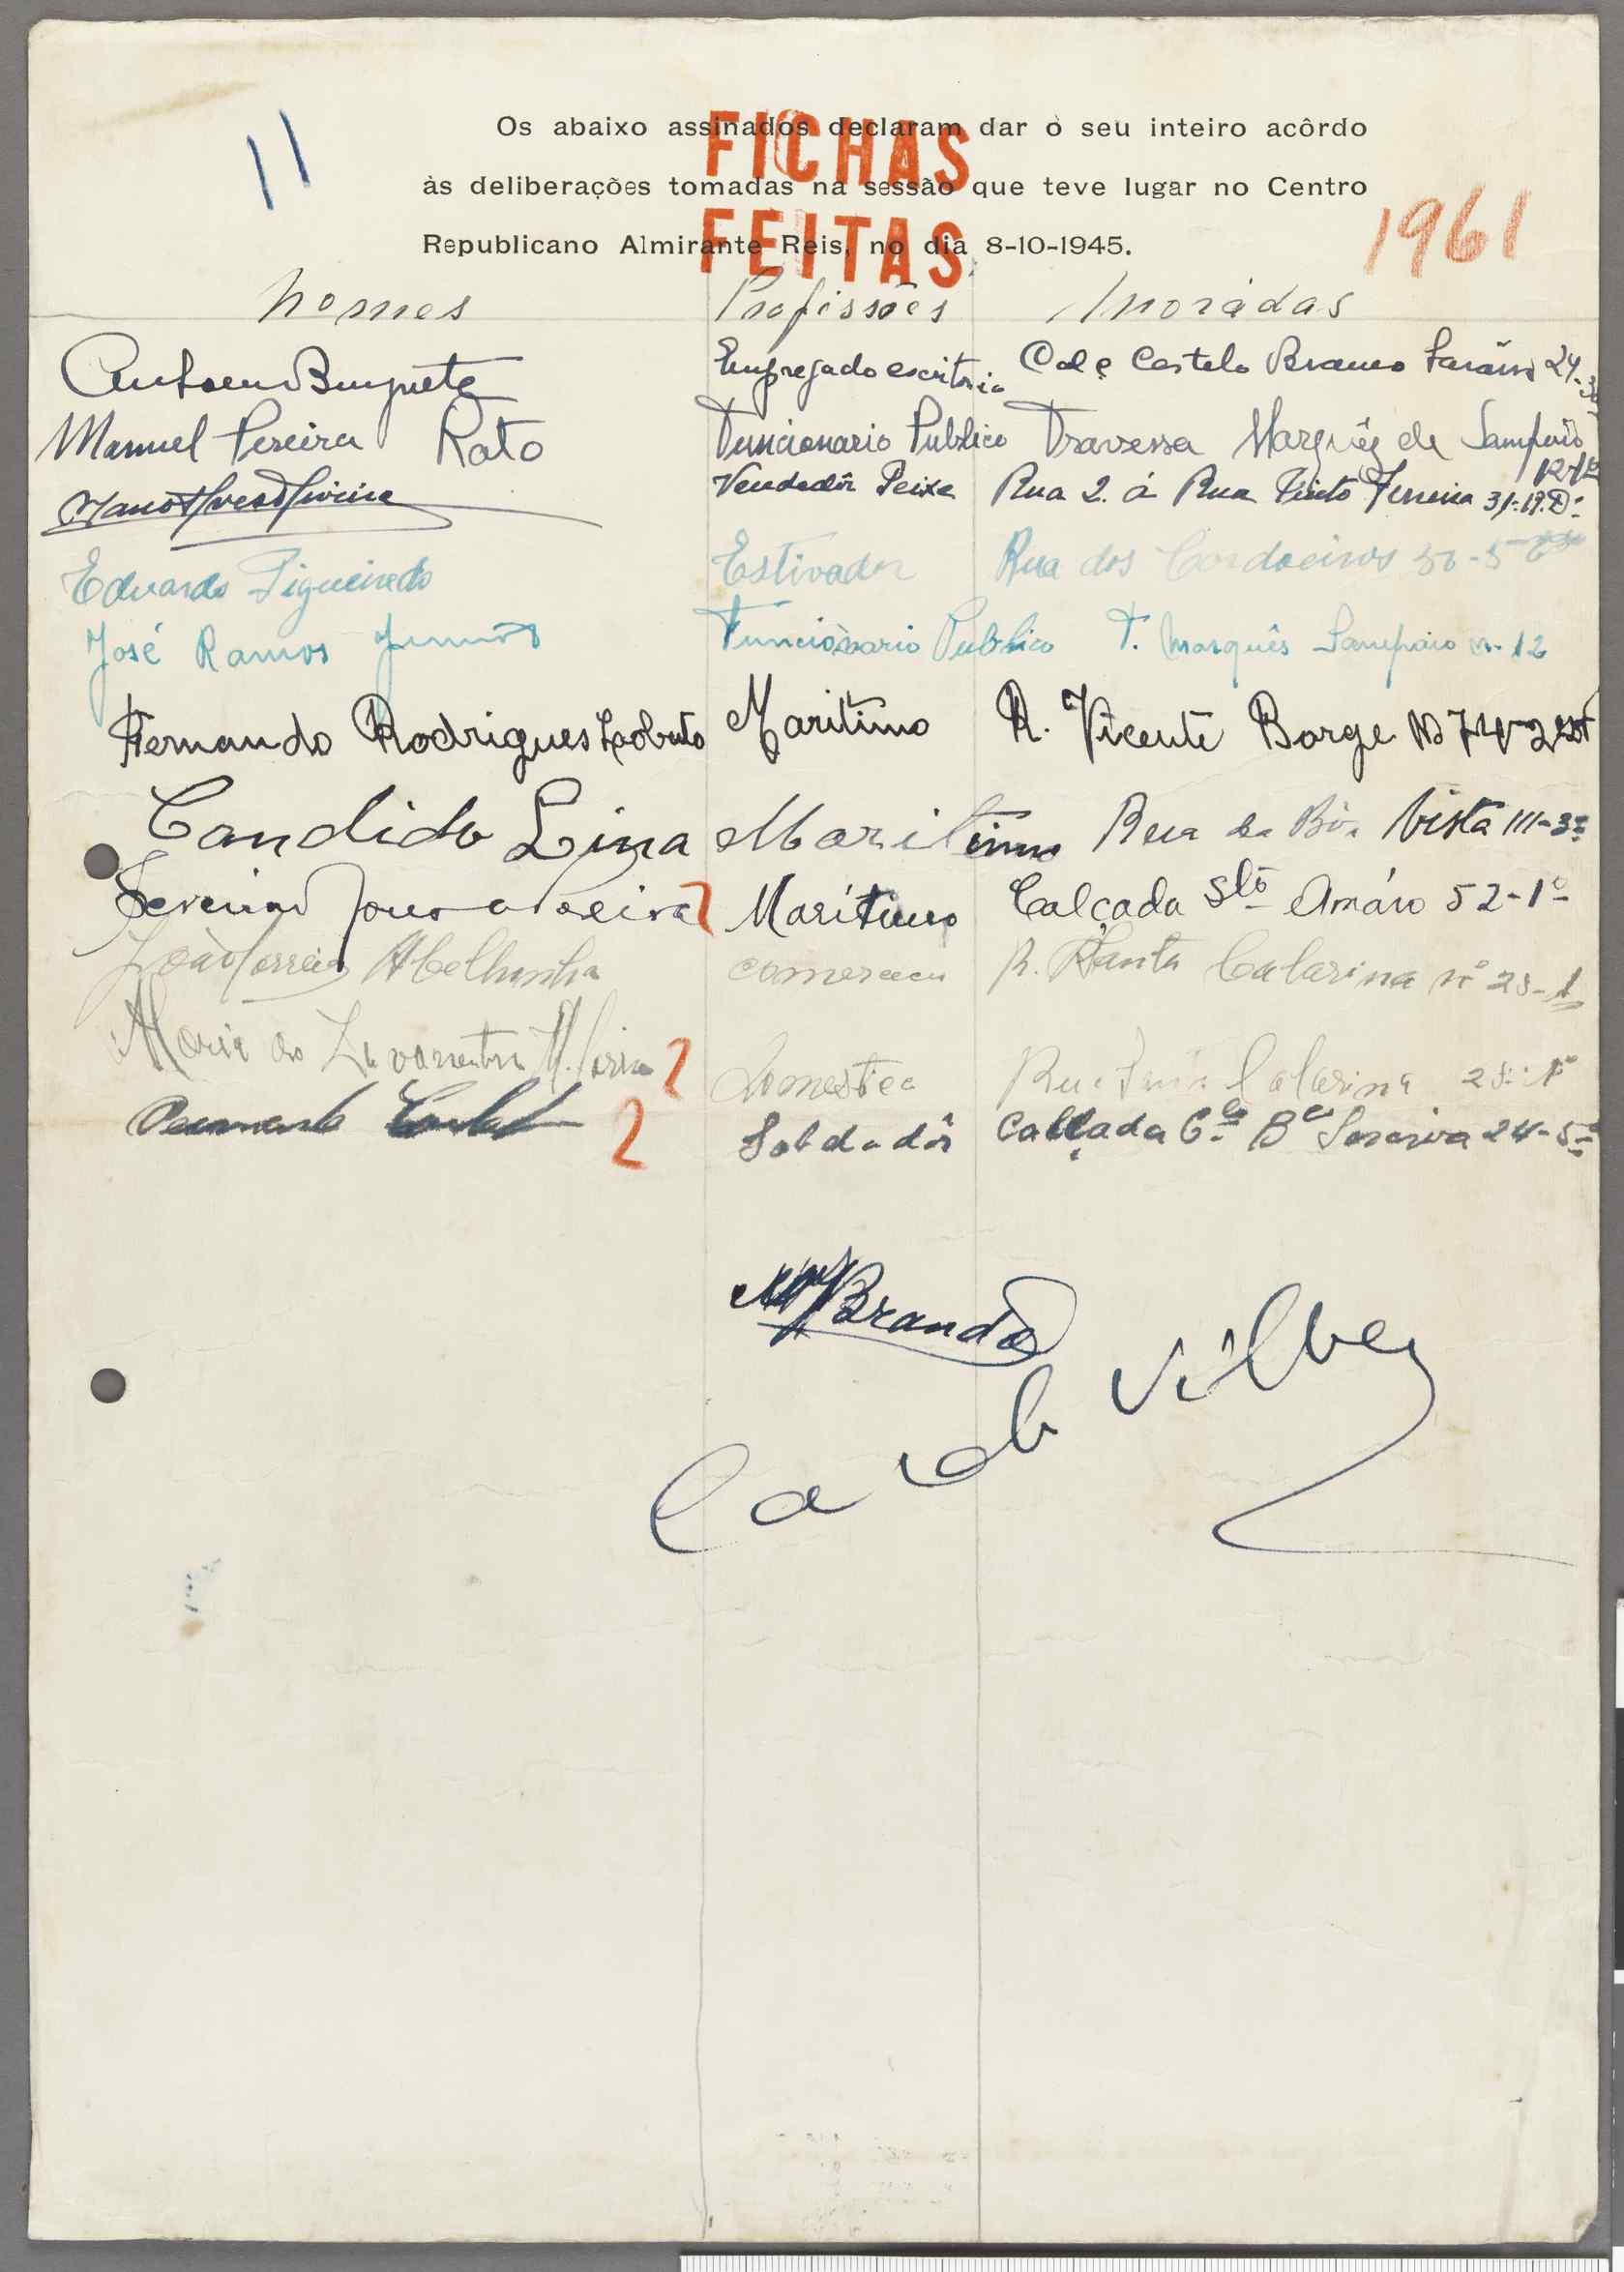 11
Os abaixo assinados declaram dar o seu inteiro acôrdo
às deliberações tomadas na sessão que teve lugar no Centro
Republicano Almirante Reis, no dia 8-10-1945.
FICHAS
FEITAS
1961
Nomes Profissões Moradas
Empregado escritorio Calç Castelo Branco Saraiva 24-
Manuel Pereira Rato Funcionario Publico Travessa Marquês de Sampaio
Vendedôr Peixe Rua 2. á Rua Pinto Ferreira 31-
Eduardo Figueiredo Estivador Rua dos Cordoeiros 50-5
José Ramos Junior Funcionario Publico T. Marquês Sampaio n. 12
Fernando Rodrigues Lobato Maritimo R. Vicente Borga No 74-2
Candido Lima Maritimo Rua da Bôa Vista 111-3º
Maritimo Calçada Stº Amáro 52-1º
João Correia Abelhinha comercio R. Santa Catarina nº 28-1
Maria do Domestica Rua Santa Catarina 28-1º
2
Soldadôr Callçada C. B. Saraiva 24-5º
2
Brandão